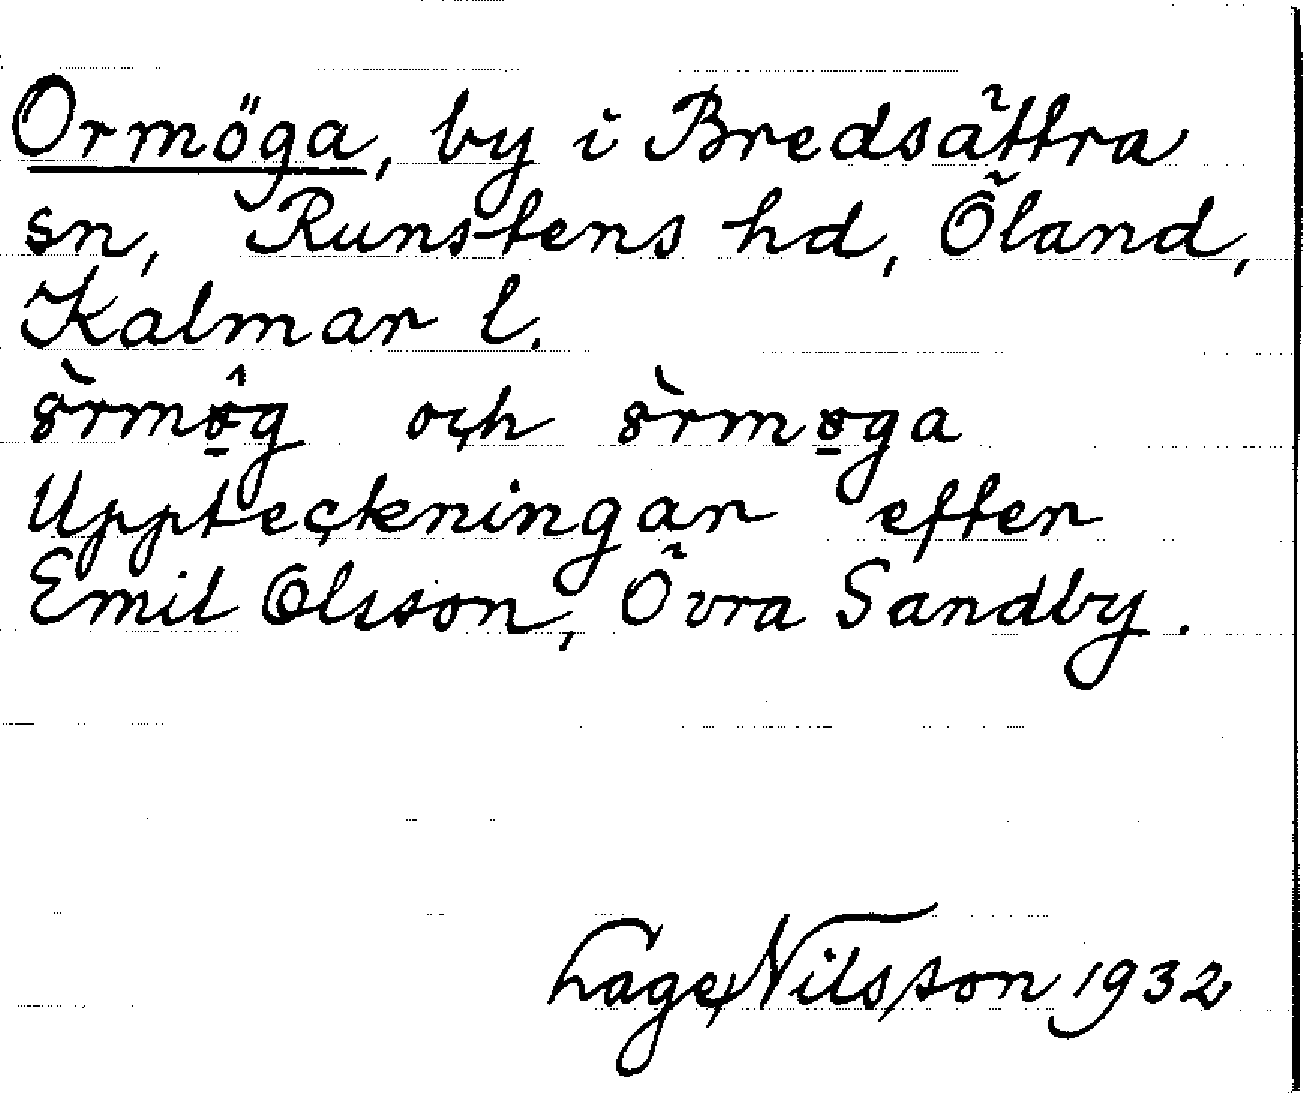 Ormöga, by i Bredsättra
sn, Runstens hd, Öland,
Kalmar l.
och
Uppteckningar efter
Emil Olsson, Övra Sandby.
Lage Nilsson 1932